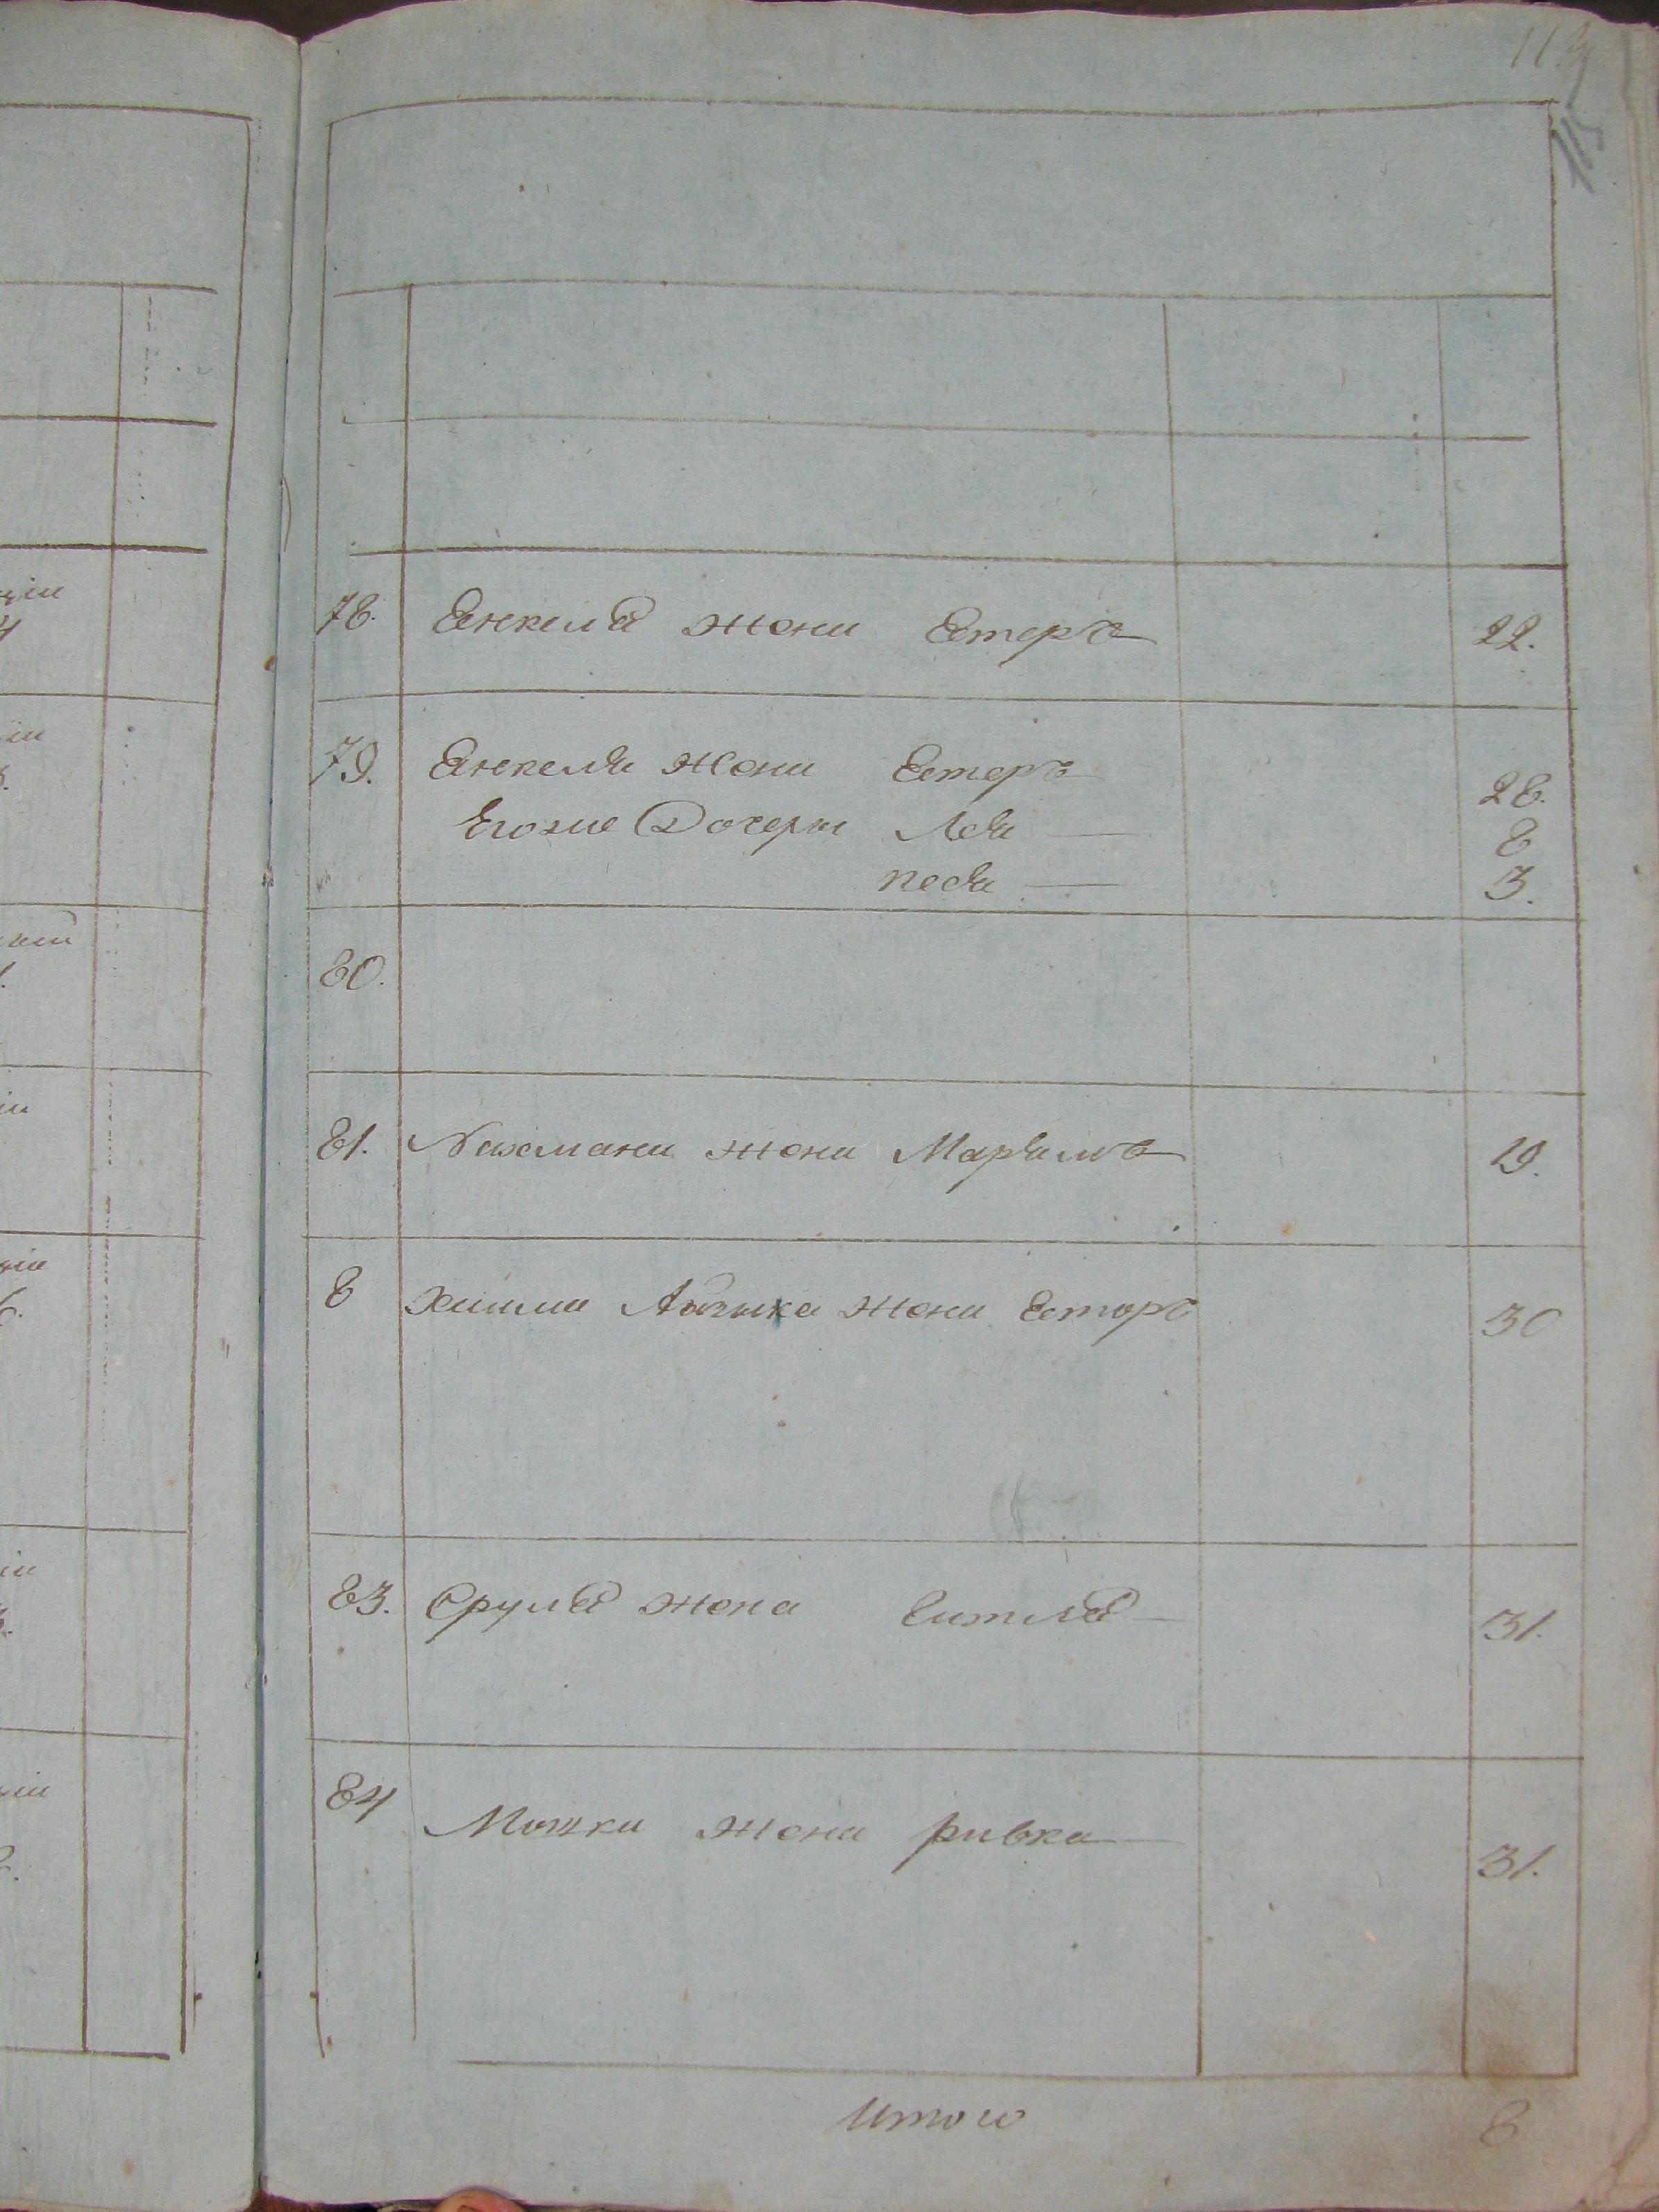 78. Енкеля жена Естеръ 22.
79. Енкеля жена Естеръ 28.
Егоже Дочери Лея 8
песя 3.
80.
81. Нахмана жена Марьямъ 19.
8 Хаима Айзыка жена Естеръ 30
83. Сруля жена Ентля 31.
84 Мошка жена ривка 31.
Итого 8